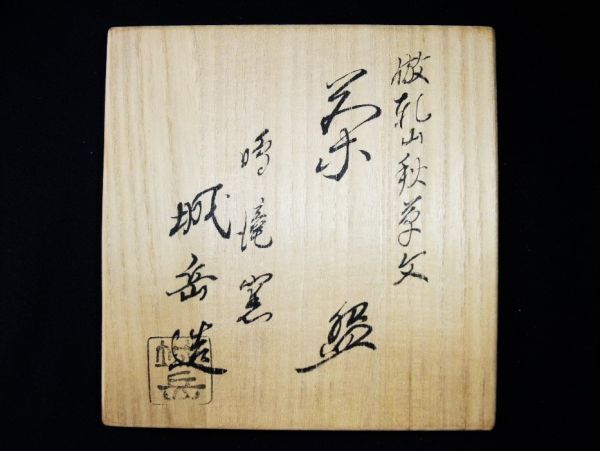 倣乾山秋草文
茶盌
鳴滝窯
城岳造
城岳